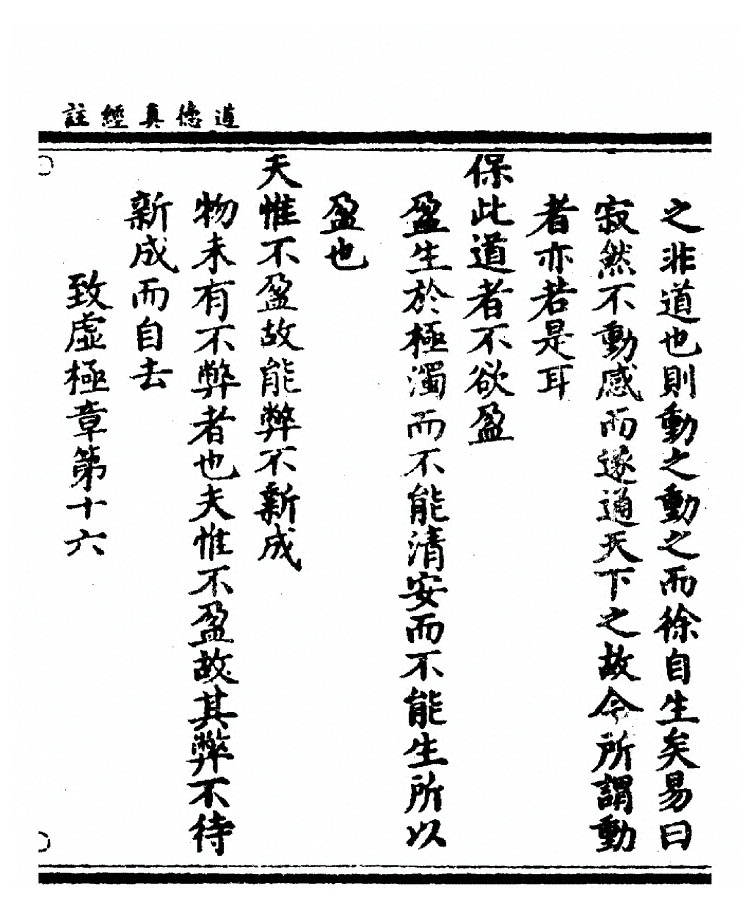 道德真經註
之非道也則動之動之而徐自生矣易曰
寂然不動感而遂通天下之故今所謂動
者亦若是耳
保此道者不欲盈
盈生於極濁而不能清安而不能生所以
盈也
夫惟不盈故能弊不新成
物未有不弊者也夫惟不盈故其弊不待
新成而自去
致虛極章第十六